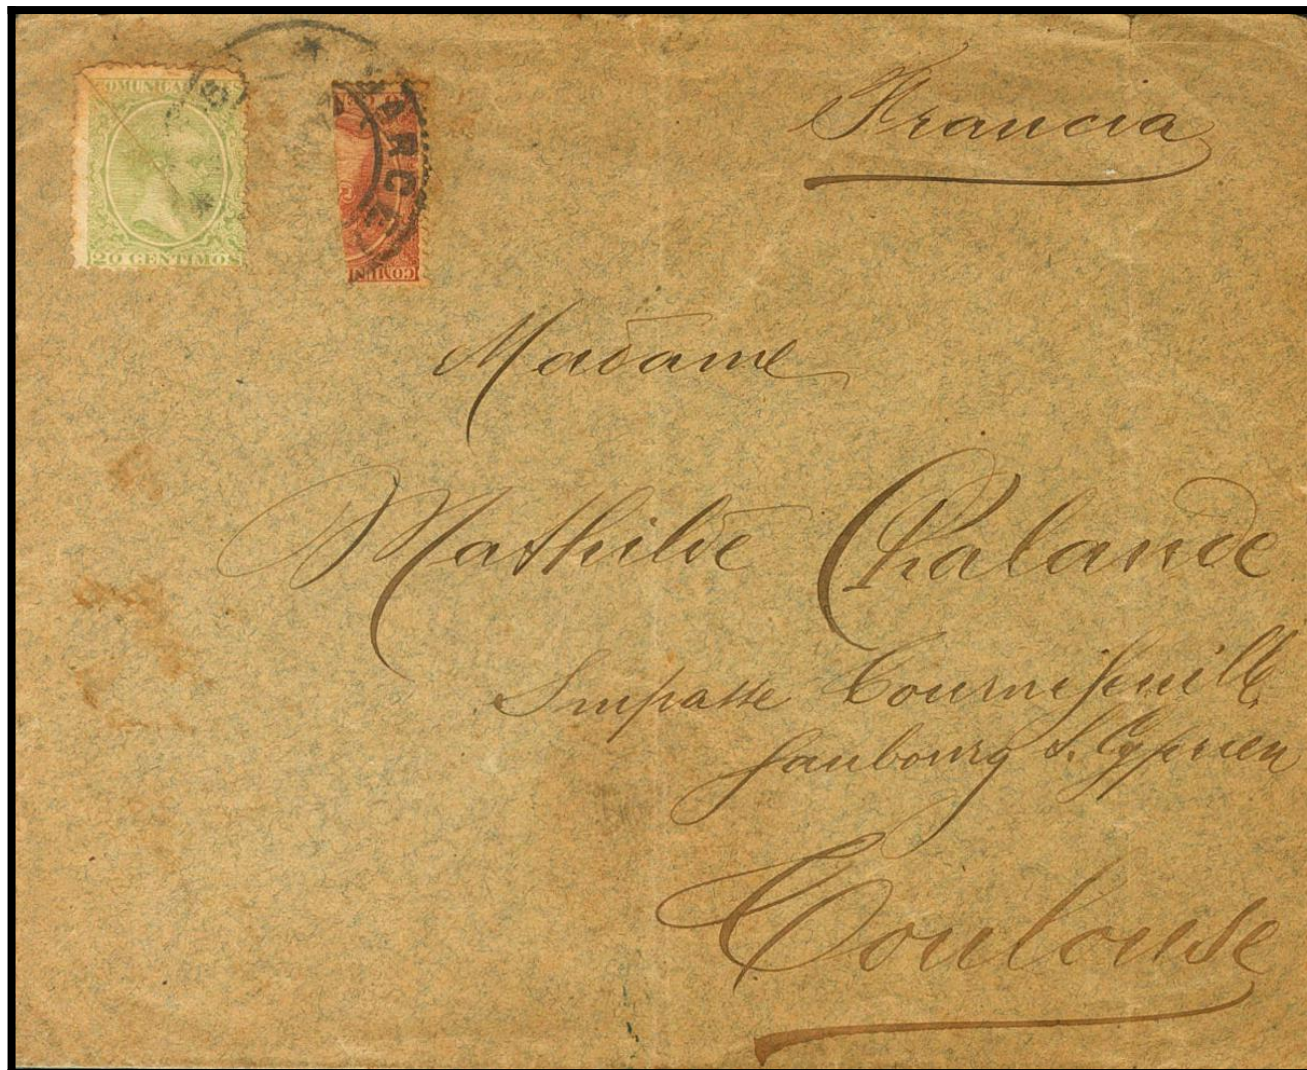 COMUNICACIONES
20 CENTIMOS
BARCE
COMUNI
Francia
Madame
Mathilde Chalande
Impasse Tournefeuille
faubourg S. Cyprien
Toulouse